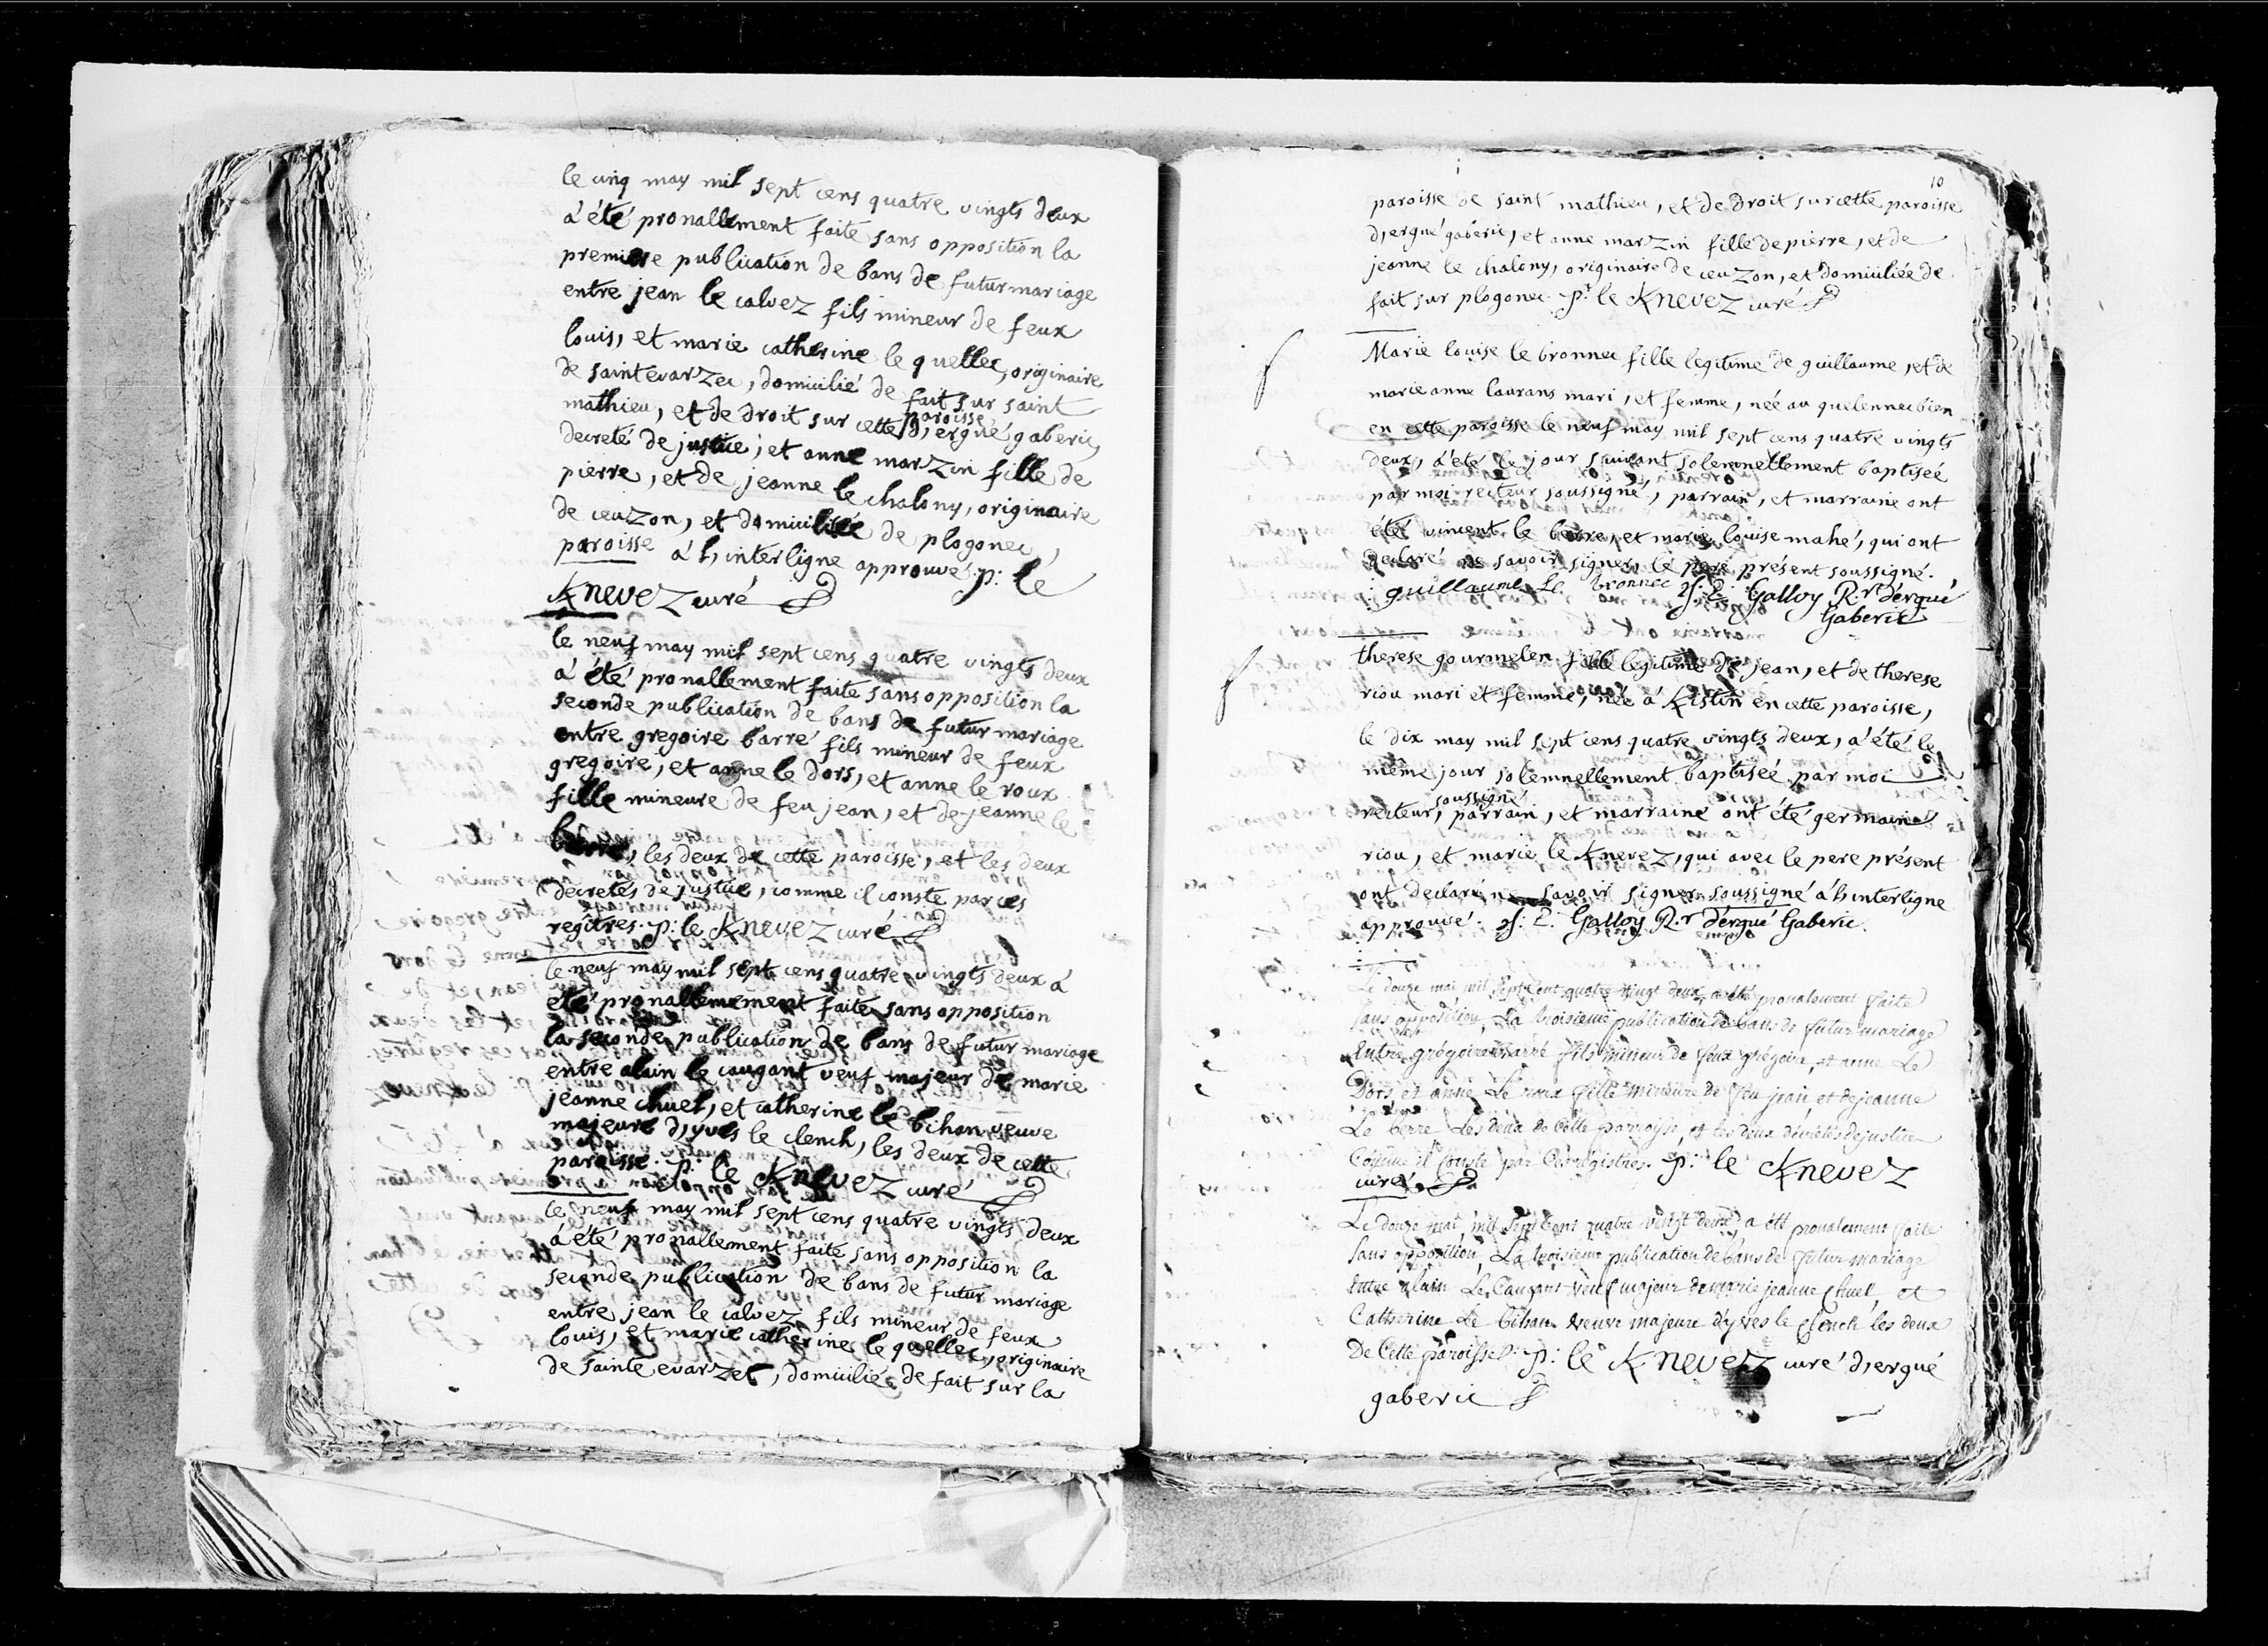 le cinq may mil sept cens quatre vingts deux
à été pronallement faite sans opposition la
premiere publication de bans de futur mariage
entre jean le calvez fils mineur de feux
louis, et marie catherine le quellec, originaire
de saintevarzec, domicilié de fait sur saint
mathieu, et de droit sur cette paroisse d'ergué gaberic,
decreté de justice; et anne marzin fille de
pierre, et de jeanne le chalony, originaire
de ceuzon, et domiciliée de plogonec,
paroisse à l'interligne approuvé. p: le
Knevez curé
le neuf may mil sept cens quatre vingts deux
à été pronallement faite sans opposition la
seconde publication de bans de futur mariage
entre gregoire barré fils mineur de feux
gregoire, et anne le dors, et anne le roux
fille mineure de feu jean, et de jeanne le
berre, les deux de cette paroisse, et les deux
decretés de justice, comme il conste par ces
regitres. p: le Knevez curé
le neuf may mil sept cens quatre vingts deux à
eté pronallemement faite sans opposition
la seconde publication de bans de futur mariage
entre alain le caugant veuf majeur de marie
jeanne chuel, et catherine le bihan veuve
majeure d'yves le clench, les deux de cette
paroisse. p: le Knevez curé
le neuf may mil sept cens quatre vingts deux
à été pronallement faite sans opposition la
seconde publication de bans de futur mariage
entre jean le calvez fils mineur de feux
louis, et marie catherine le quellec, originaire
de sainte evarzec, domicilié de fait sur la
10
paroisse de saint mathieu, et de droit sur cette paroisse
d'ergué gaberic, et anne marzin fille de pierre, et de
jeanne le chalony, originaire de ceuzon, et domiciliée de
fait sur plogonec. p: le Knevez curé
Marie louise le bronnec fille legitime de guillaume, et de
marie anne laurans mari, et femme, née au quelennec bien
en cette paroisse le neuf may mil sept cens quatre vingts
deux, à été le jour suivant solemnellement baptiseé
par moi recteur soussigné, parrain, et marraine ont
été vincent le berre, et marie louise mahé, qui ont
declaré ne savoir signer, le pere présent soussigné.
guillaume Le bronnec J. E. Galloy R.r d'ergué
Gaberic
therese gourmelen fille legitime de jean, et de therese
riou mari et femme, née à Kistin en cette paroisse,
le dix may mil sept cens quatre vingts deux, à été le
même jour solemnellement baptiseé par moi
recteur soussigné, parrain, et marraine ont été germain
riou, et marie le Knevez, qui avec le pere présent
ont declaré ne savoir signer soussigné à l'interligne
approuvé. J. E. Galloy R.r d'ergué Gaberic.
Le douze mai mil Sept Cent quatre Vingt deux a été pronalement faite
sans opposition, La troisieme publication de bans de futur mariage
Entre grégoire barré fils mineur de feux grégoire, et anne Le
Dors, et anne Le roux fille mineure de feu jean et de jeanne
Le berre Les deux de Cette paroisse, et les deux décrétés de justice
Comme il Conste par Ces registres. p: le Knevez
curé
Le douze mai mil Sept Cens quatre vingt deux a été pronalement faite
Sans opposition, La troisieme publication de bans de futur mariage
entre alain Le Caugant Veuf majeur de marie jeanne Chuel, et
Catherine Le bihan Veuve majeure d'yves le Clench les deux
De Cette paroisse. p: le Knevez curé d'ergué
gaberic